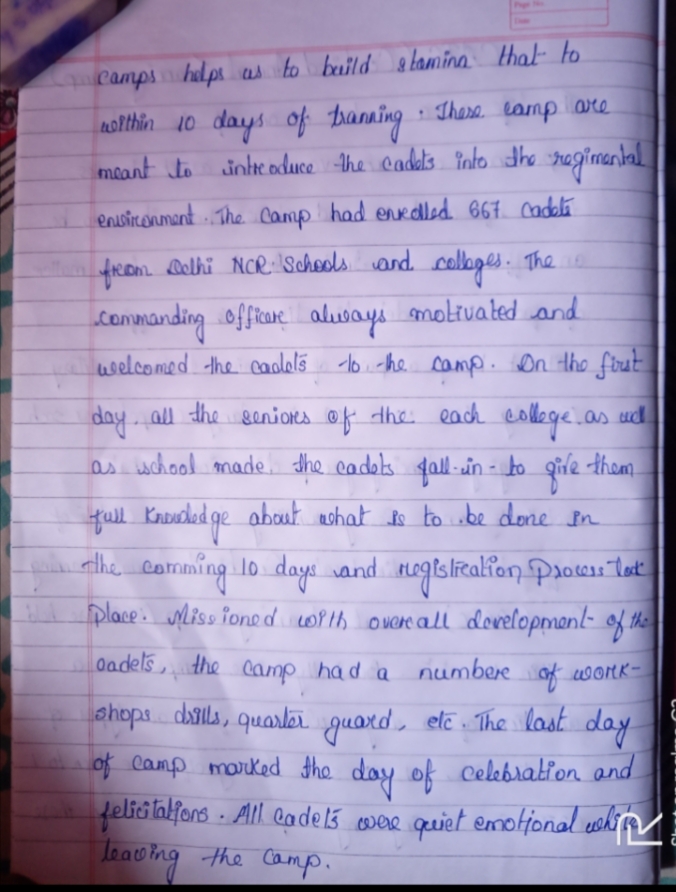 Page No.
Date
camps helps us to build stamina that to
within 10 days of tranning. These camp are
meant to introduce the cadets into the regimental
environment. The camp had enrolled 667 cadets
from Delhi NCR Schools and colleges. The
commanding officer always motivated and
welcomed the cadets to the camp. On the first
day, all the seniors of the each college as well
as school made the cadets fall-in-to give them
full knowledge about what is to be done in
the comming 10 days and registration process took
place. Missioned with overall development of the
cadets, the camp had a number of work-
shops drills, quarter guard, etc. The last day
of camp marked the day of celebration and
felicitations. All cadets were quiet emotional while
leaving the camp.